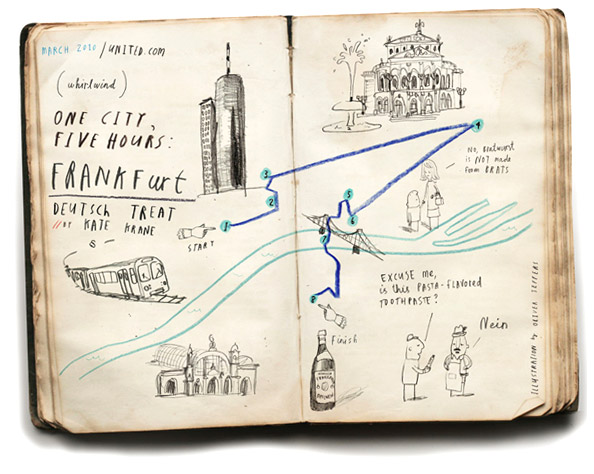 MARCH 2010 / UNITED.COM
(whirlwind)
ONE CITY,
FIVE HOURS:
FRANKFurt
DEUTSCH TREAT
//BY KATE KRANE
START
1
2
3
4
5
6
7
8
NO, BratWurst
is NOT made
from BRATS
EXCUSE ME,
is this PASTA-FLAVORED
TOOTHPASTE?
Nein
Finish
ILLUSTRATION by OLIVER JEFFERS